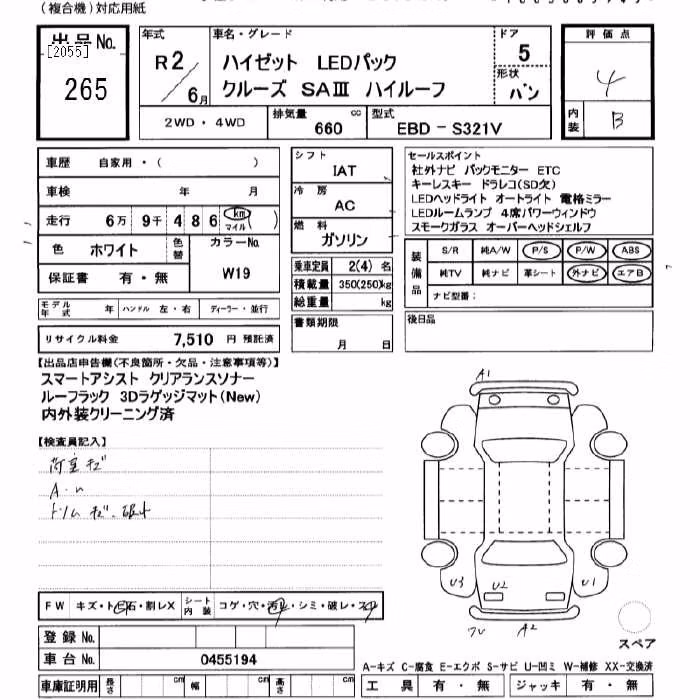 (複合機)対応用紙
出品No.
[2055]
265
年式
R2/6月
車名・グレード
ハイゼット LEDパック
クルーズ SAⅢ ハイルーフ
ドア
5
形状
バン
評価点
4
内装
B
2WD・4WD
排気量
660 cc
型式
EBD-S321V
車歴 自家用・( )
車検 年 月
走行 6万 9千 4 8 6 km マイル
色 ホワイト 色替 カラーNo.
W19
保証書 有・無
モデル年式 年 ハンドル 左・右 ディーラー・並行
リサイクル料金 7,510 円 預託済
シフト
IAT
冷房
AC
燃料
ガソリン
乗車定員 2(4) 名
積載量 350(250)kg
総重量 kg
書類期限
月 日
セールスポイント
社外ナビ バックモニター ETC
キーレスキー ドラレコ(SD欠)
LEDヘッドライト オートライト 電格ミラー
LEDルームランプ 4席パワーウィンドウ
スモークガラス オーバーヘッドシェルフ
装備品
S/R 純A/W P/S P/W ABS
純TV 純ナビ 革シート 外ナビ エアB
ナビ型番:
後日品
【出品店申告欄(不良箇所・欠品・注意事項等)】
スマートアシスト クリアランスソナー
ルーフラック 3Dラゲッジマット(New)
内外装クリーニング済
【検査員記入】
荷室キズ
トリムキズ・破レ
FW キズ・トビ石・割レX シート内装 コゲ・穴・汚レ・シミ・破レ・スレ
登録No.
車台No. 0455194
車庫証明用 長さ cm 幅 cm 高さ cm
A1
U3
U2
U1
A2
スペア
A-キズ C-腐食 E-エクボ S-サビ U-凹ミ W-補修 XX-交換済
工具 有・無 ジャッキ 有・無